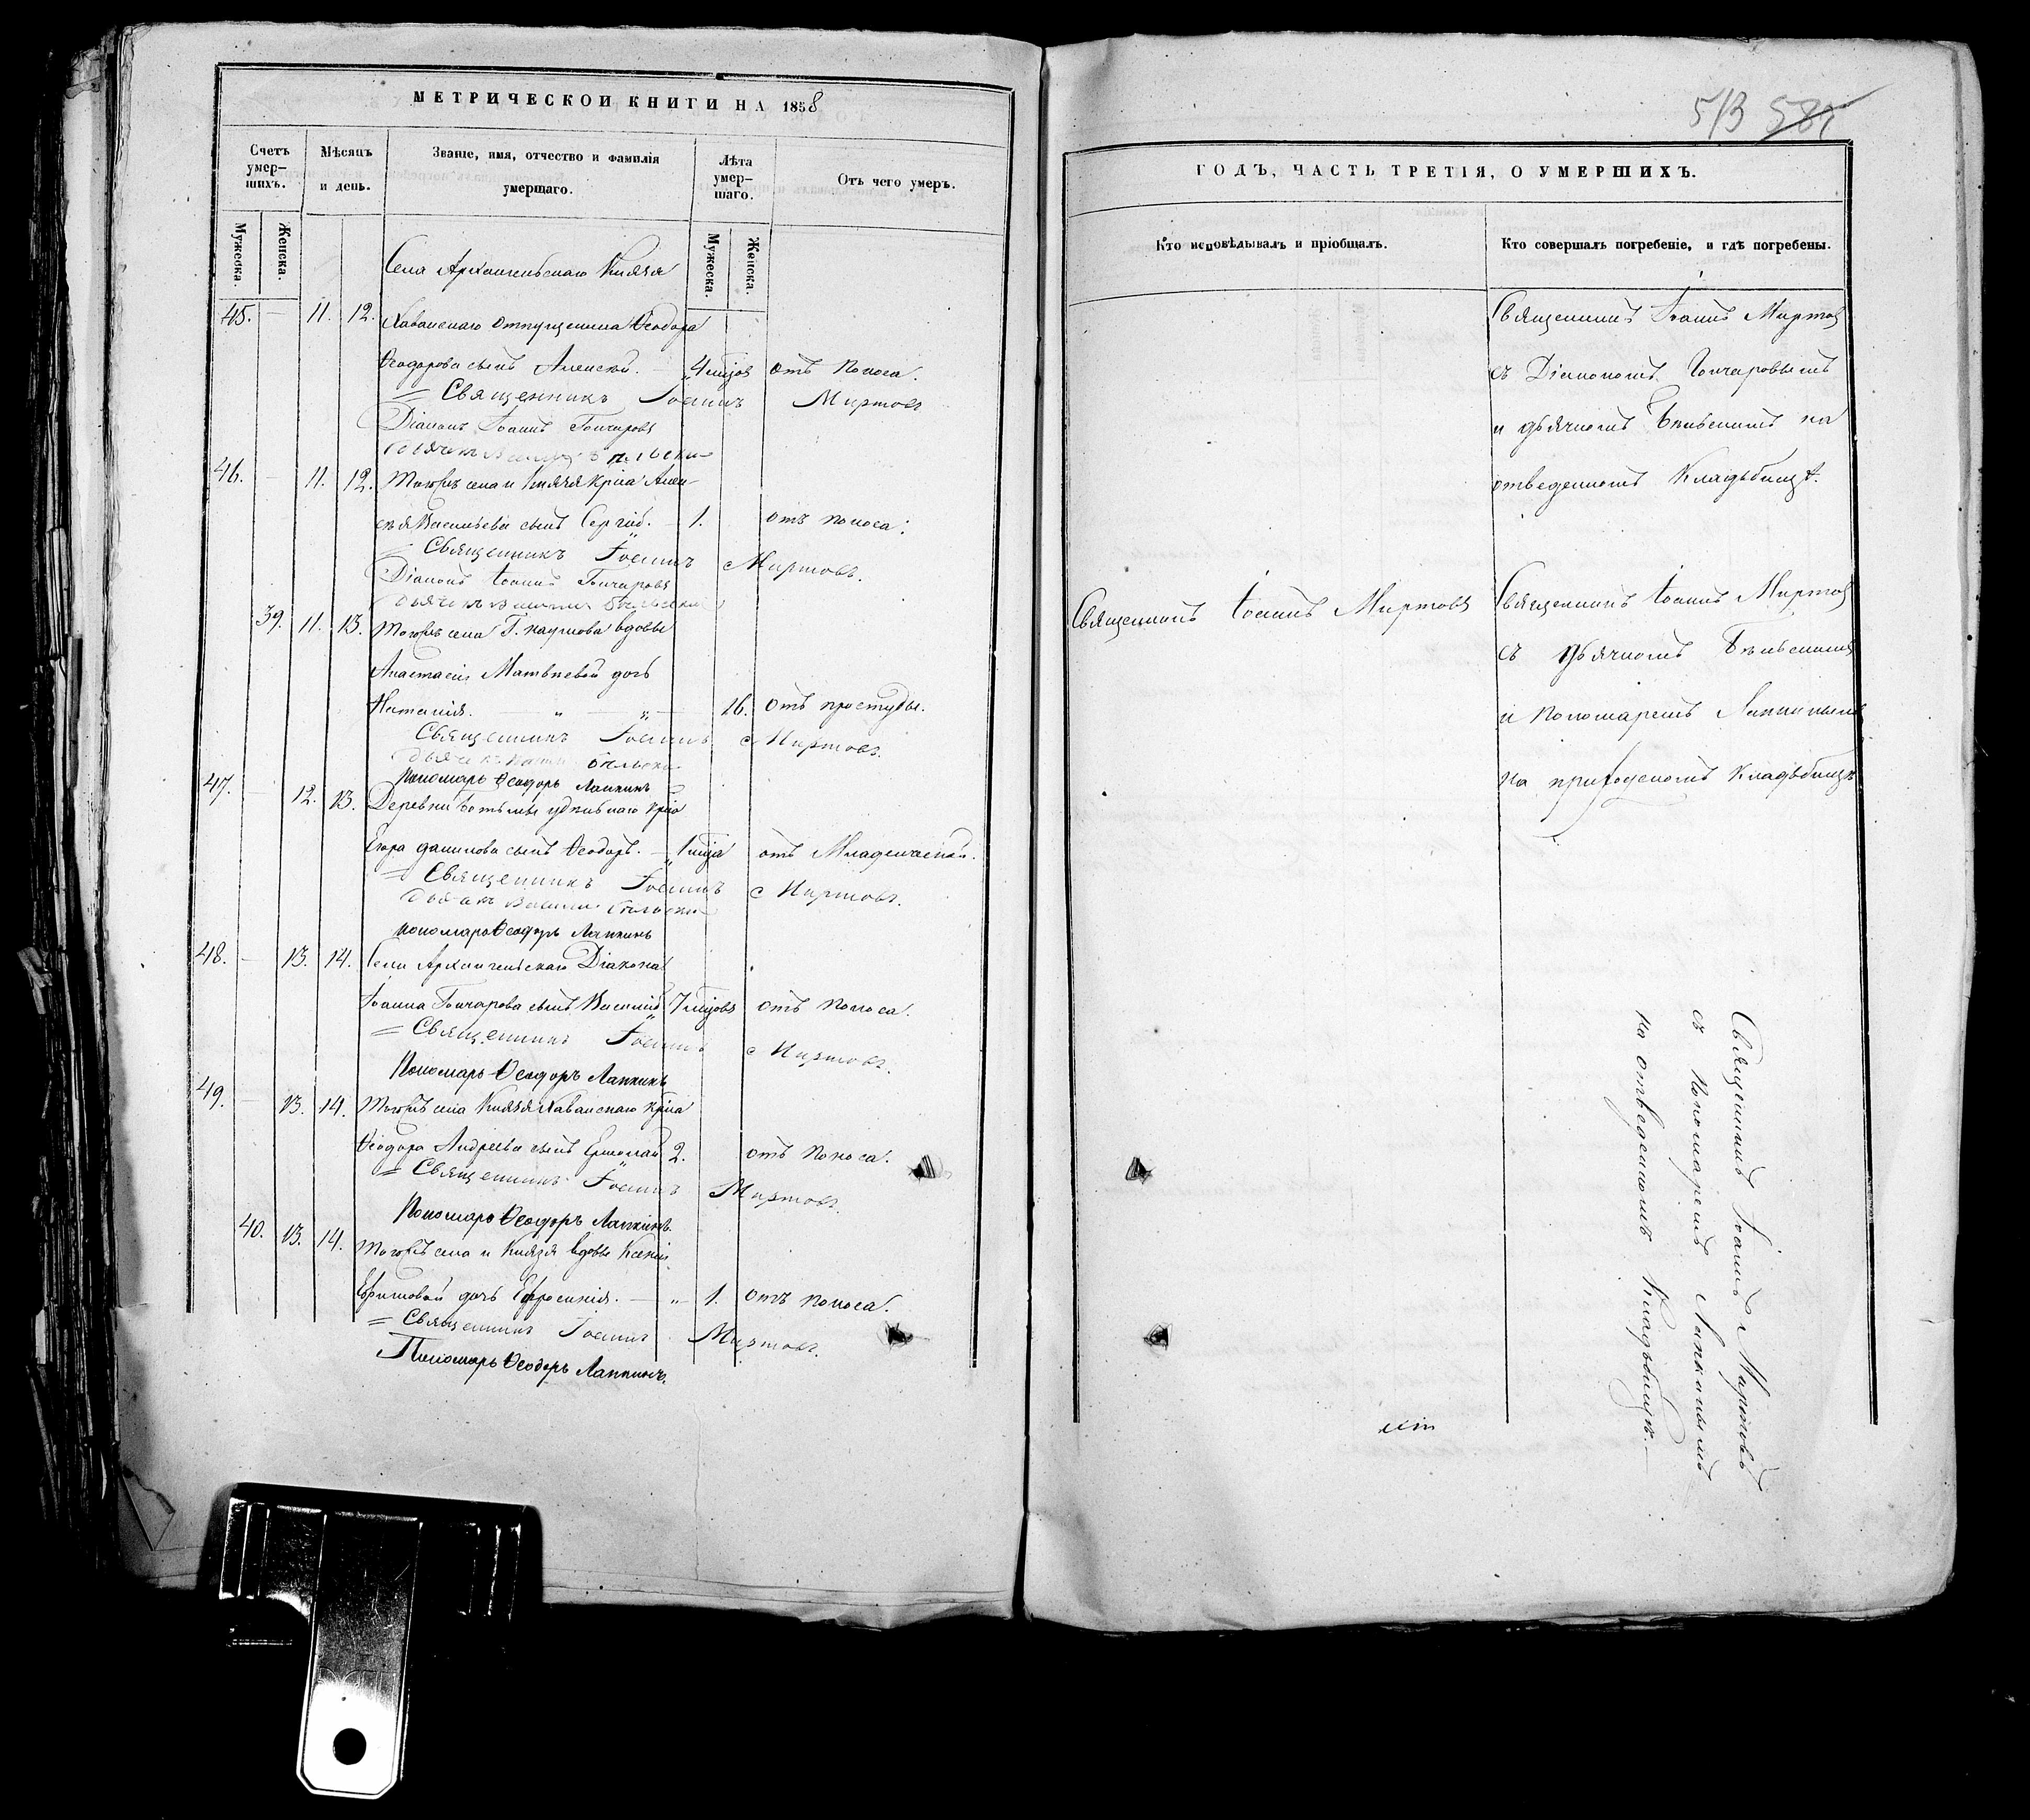 МЕТРИЧЕСКОЙ КНИГИ НА 1858
Счетъ умер-шихъ.
Мѣсяцъ и день.
Званіе, имя, отчество и фамилія умершаго.
Лѣта умер-шаго.
Отъ чего умеръ.
Мужеска.
Женска.
Мужеска.
Женска.
Села Архангельскаго Князя
45. — 11. 12. Хованскаго отпущенника Ѳеодора
Ѳеодорова сынъ Алексѣй. — 4 мцовъ отъ поноса.
Священникъ Іоаннъ Миртовъ
Діаконъ Іоаннъ Гончаровъ
46. — 11. 12. Тогожъ села и Князя кр͠на Алек-
сѣя Васильева сынъ Сергій. — 1. отъ поноса.
Священникъ Іоаннъ Миртовъ.
Діаконъ Іоаннъ Гончаровъ
39. 11. 13. Тогожъ села Г. Наумова вдовы
Анастасіи Матвѣевой дочь
Наталія. — „ — „ — 16. отъ простуды.
Священникъ Іоаннъ Миртовъ.
Пономарь Ѳеодоръ Лапкинъ
47. — 12. 13. Деревни удѣльнаго кр͠на
Егора Данилова сынъ Ѳеодоръ. — 1 мца отъ Младенческой.
Священникъ Іоаннъ Миртовъ.
Пономарь Ѳеодоръ Лапкинъ
48. — 13. 14. Села Архангельскаго Діакона
Іоанна Гончарова сынъ Василій 7 мцовъ отъ поноса.
Священникъ Іоаннъ Миртовъ.
Пономарь Ѳеодоръ Лапкинъ
49. — 13. 14. Тогожъ села Князя Хованскаго кр͠на
Ѳеодора Андреева сынъ Ермолай 2. отъ поноса.
Священникъ Іоаннъ Миртовъ.
Пономарь Ѳеодоръ Лапкинъ.
40. 13. 14. Тогожъ села и Князя вдовы Ксеніи
Ефимовой дочь Ефросинія. — „ 1. отъ поноса.
Священникъ Іоаннъ Миртовъ.
Пономарь Ѳеодоръ Лапкинъ.
513 581
ГОДЪ, ЧАСТЬ ТРЕТІЯ, О УМЕРШИХЪ.
Кто исповѣдывалъ и пріобщалъ.
Кто совершалъ погребеніе, и гдѣ погребены.
Священникъ Іоаннъ Миртовъ
съ Діакономъ Гончаровымъ
и дьячкомъ Бѣльскимъ на
отведенномъ Кладбищѣ.
Священникъ Іоаннъ Миртовъ
Священникъ Іоаннъ Миртовъ
съ дьячкомъ Бѣльскимъ
и пономаремъ Лапкинымъ
на приходскомъ кладбищѣ
Священникъ Іоаннъ Миртовъ
съ пономаремъ Лапкинымъ
на отведенномъ Кладбищѣ. —